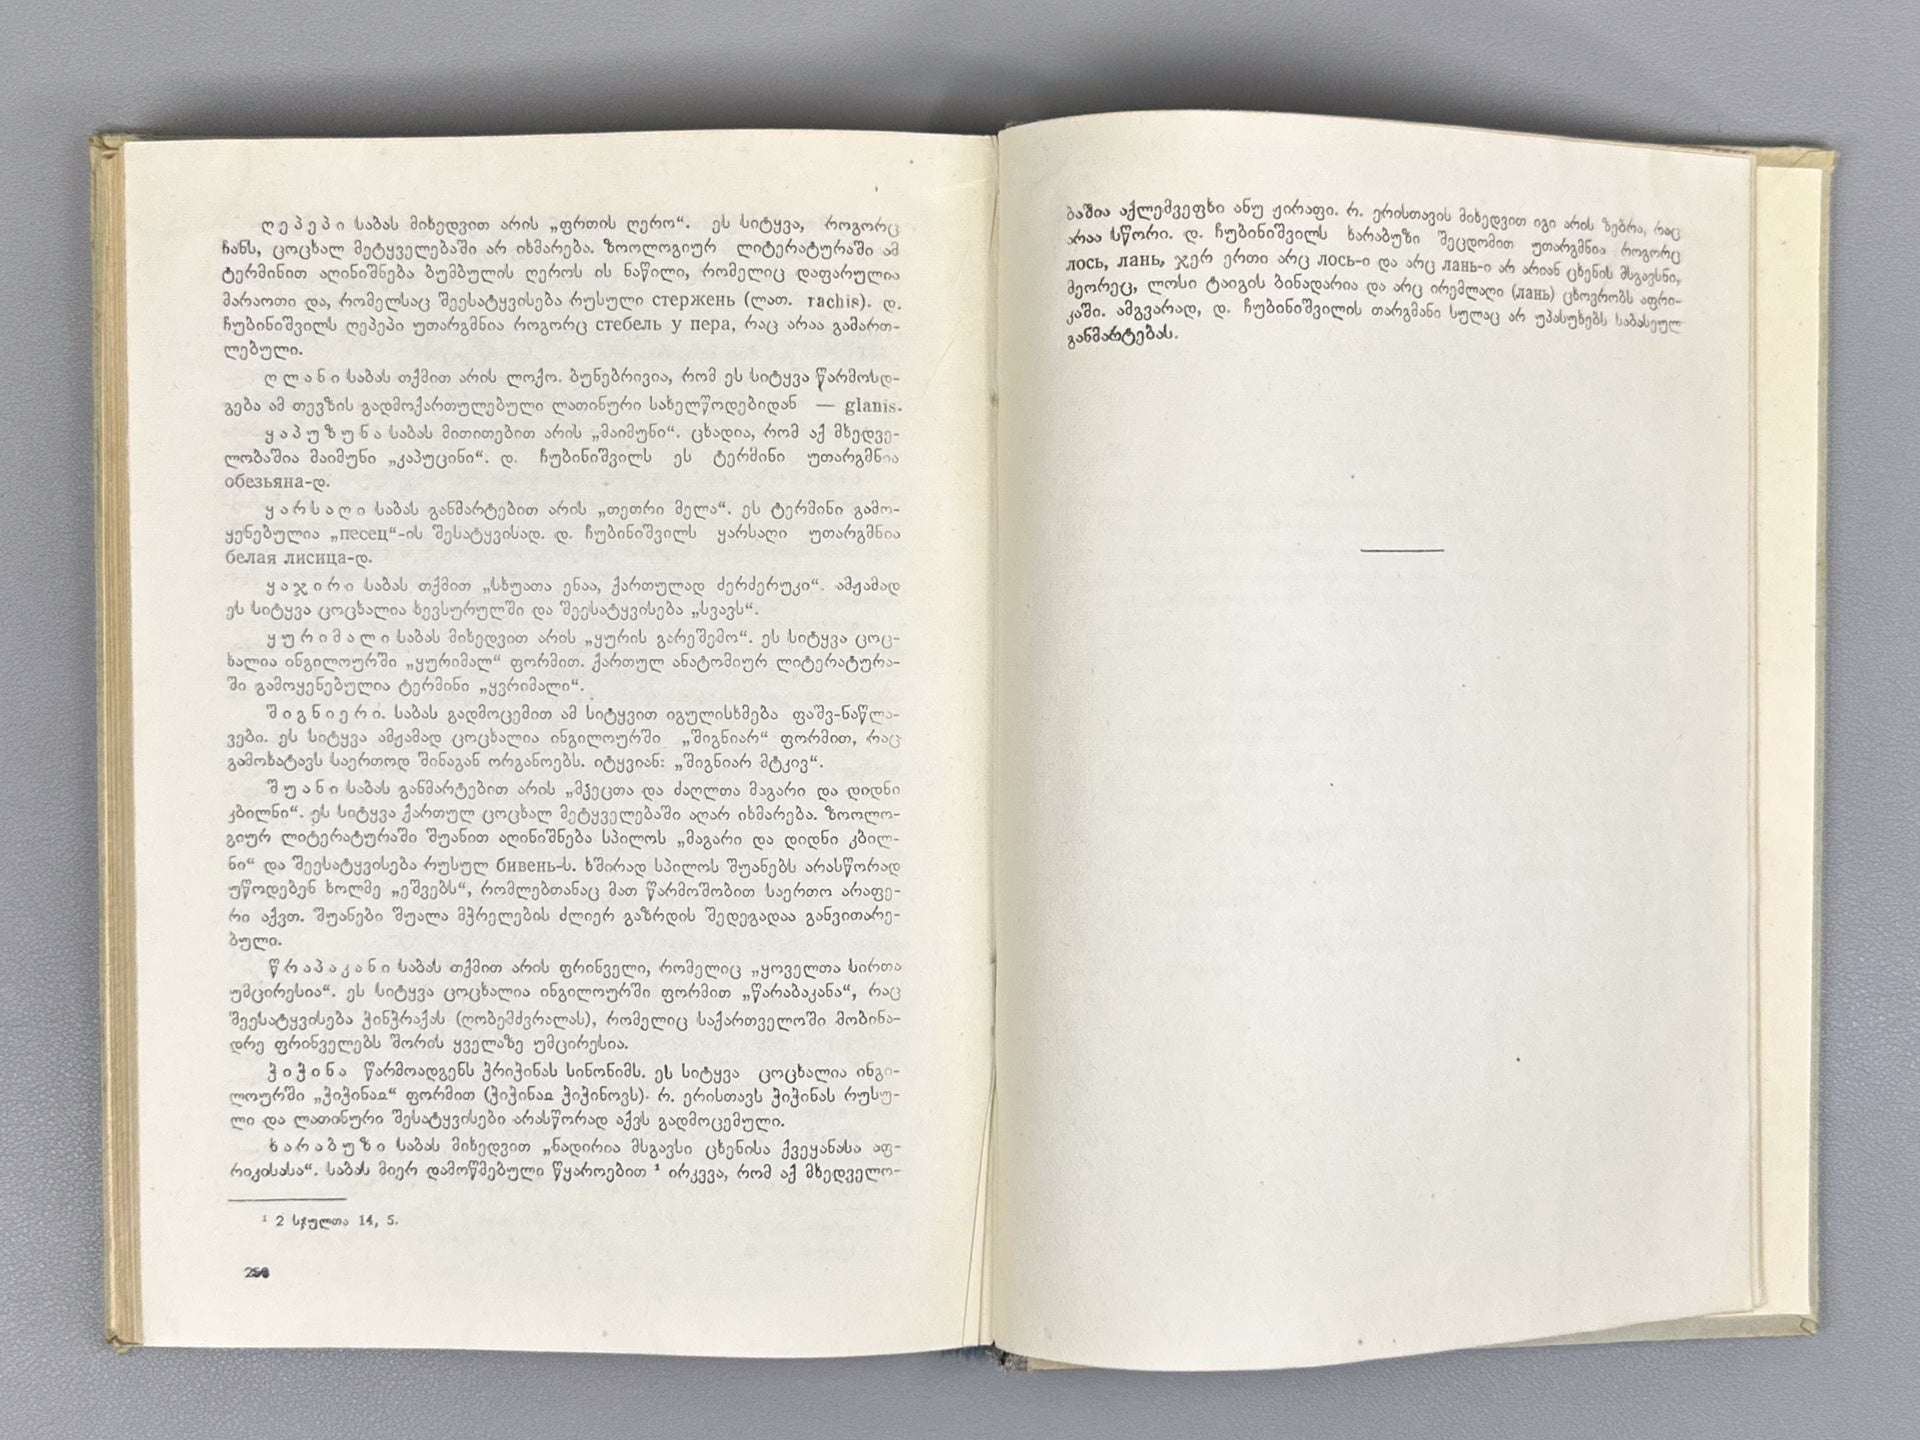 ღეპეპი საბას მიხედვით არის „ფრთის ღერო“. ეს სიტყვა, როგორც
ჩანს, ცოცხალ მეტყველებაში არ იხმარება. ზოოლოგიურ ლიტერატურაში ამ
ტერმინით აღინიშნება ბუმბულის ღეროს ის ნაწილი, რომელიც დაფარულია
მარაოთი და, რომელსაც შეესატყვისება რუსული стержень (ლათ. rachis). დ.
ჩუბინიშვილს ღეპეპი უთარგმნია როგორც стебель у пера, რაც არაა გამართ-
ლებული.
ღლანი საბას თქმით არის ლოქო. ბუნებრივია, რომ ეს სიტყვა წარმოსდ-
გება ამ თევზის გადმოქართულებული ლათინური სახელწოდებიდან — glanis.
ყაპუზუნა საბას მითითებით არის „მაიმუნი“. ცხადია, რომ აქ მხედვე-
ლობაშია მაიმუნი „კაპუცინი“. დ. ჩუბინიშვილს ეს ტერმინი უთარგმნია
обезьяна-დ.
ყარსაღი საბას განმარტებით არის „თეთრი მელა“. ეს ტერმინი გამო-
ყენებულია „песец“-ის შესატყვისად. დ. ჩუბინიშვილს ყარსაღი უთარგმნია
белая лисица-დ.
ყაჯირი საბას თქმით „სხუათა ენაა, ქართულად ძერძერუკი“. ამჟამად
ეს სიტყვა ცოცხალია ხევსურულში და შეესატყვისება „სვავს“.
ყურიმალი საბას მიხედვით არის „ყურის გარეშემო“. ეს სიტყვა ცოც-
ხალია ინგილოურში „ყურიმალ“ ფორმით. ქართულ ანატომიურ ლიტერატურა-
ში გამოყენებულია ტერმინი „ყვრიმალი“.
შიგნიერი. საბას გადმოცემით ამ სიტყვით იგულისხმება ფაშვ-ნაწლა-
ვები. ეს სიტყვა ამჟამად ცოცხალია ინგილოურში „შიგნიარ“ ფორმით, რაც
გამოხატავს საერთოდ შინაგან ორგანოებს. იტყვიან: „შიგნიარ მტკივ“.
შუანი საბას განმარტებით არის „მჴეცთა და ძაღლთა მაგარი და დიდნი
კბილნი“. ეს სიტყვა ქართულ ცოცხალ მეტყველებაში აღარ იხმარება. ზოოლო-
გიურ ლიტერატურაში შუანით აღინიშნება სპილოს „მაგარი და დიდნი კბილ-
ნი“ და შეესატყვისება რუსულ бивень-ს. ხშირად სპილოს შუანებს არასწორად
უწოდებენ ხოლმე „ეშვებს“, რომლებთანაც მათ წარმოშობით საერთო არაფე-
რი აქვთ. შუანები შუალა მჭრელების ძლიერ გაზრდის შედეგადაა განვითარე-
ბული.
წრაპაკანი საბას თქმით არის ფრინველი, რომელიც „ყოველთა სირთა
უმცირესია“. ეს სიტყვა ცოცხალია ინგილოურში ფორმით „წარაბაკანა“, რაც
შეესატყვისება ჭინჭრაქას (ღობემძვრალას), რომელიც საქართველოში მობინა-
დრე ფრინველებს შორის ყველაზე უმცირესია.
ჭიჭინა წარმოადგენს ჭრიჭინას სინონიმს. ეს სიტყვა ცოცხალია ინგი-
ლოურში „ჭიჭინაჲ“ ფორმით (ჭიჭინაჲ ჭიჭინოვს). რ. ერისთავს ჭიჭინას რუსუ-
ლი და ლათინური შესატყვისები არასწორად აქვს გადმოცემული.
ხარაბუზი საბას მიხედვით „ნადირია მსგავსი ცხენისა ქვეყანასა აფ-
რიკისასა“. საბას მიერ დამოწმებული წყაროებით ¹ ირკვვა, რომ აქ მხედველო-
¹ 2 სჯულთა 14, 5.
256
ბაშია აქლემვეფხი ანუ ჟირაფი. რ. ერისთავის მიხედვით იგი არის ზებრა, რაც
არაა სწორი. დ. ჩუბინიშვილს ხარაბუზი შეცდომით უთარგმნია როგორც
лось, лань, ჯერ ერთი არც лось-ი და არც лань-ი არ არიან ცხენის მსგავსნი,
მეორეც, ლოსი ტაიგის ბინადარია და არც ირემლაღი (лань) ცხოვრობს აფრი-
კაში. ამგვარად, დ. ჩუბინიშვილის თარგმანი სულაც არ უპასუხებს საბასეულ
განმარტებას.